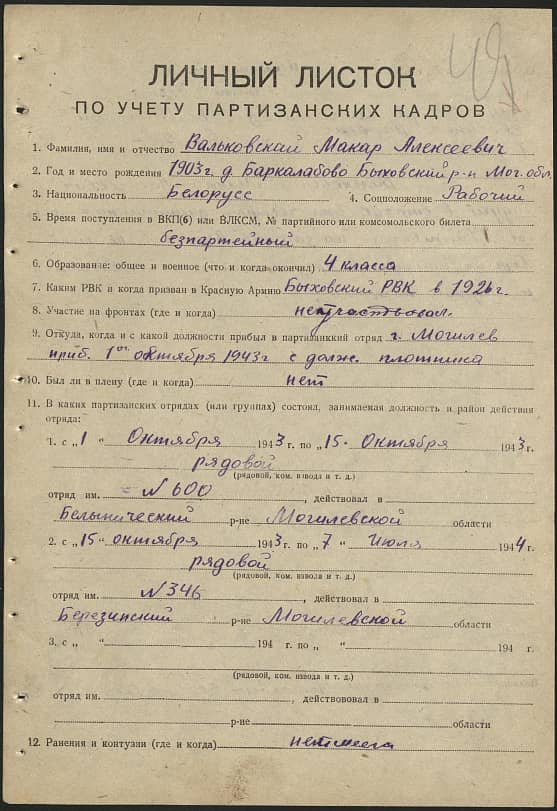 ЛИЧНЫЙ ЛИСТОК
ПО УЧЕТУ ПАРТИЗАНСКИХ КАДРОВ
1. Фамилия, имя и отчество Вальковский Макар Алексеевич
2. Год и место рождения 1903г. д. Баркалабово Быховский р-н Мог. обл.
3. Национальность Белорусс 4. Соцположение Рабочий
5. Время поступления в ВКП(б) или ВЛКСМ, № партийного или комсомольского билета
безпартейный
6. Образование: общее и военное (что и когда окончил) 4 класса
7. Каким РВК и когда призван в Красную Армию Быховский РВК в 1926 г.
8. Участие на фронтах (где и когда) не участвовал.
9. Откуда, когда и с какой должности прибыл в партизанский отряд г. Могилев
приб. 1ого октября 1943г с долж. плотника
10. Был ли в плену (где и когда) нет
11. В каких партизанских отрядах (или группах) состоял, занимаемая должность и район действия
отряда:
1. с „1" Октября 1943 г. по „15" Октября 1943 г.
рядовой
(рядовой, ком. взвода и т. д.)
отряд им. №600, действовал в
Белынический р-не Могилевской области
2. с „15" октября 1943 г. по „7" Июля 1944 г.
рядовой
(рядовой, ком. взвода и т. д.)
отряд им. №346, действовал в
Березинский р-не Могилевской области
3. с „ " 194 г. по „ " 194 г.
(рядовой, ком. взвода и т. д.)
отряд им. , действововал в
р-не области
12. Ранения и контузии (где и когда)